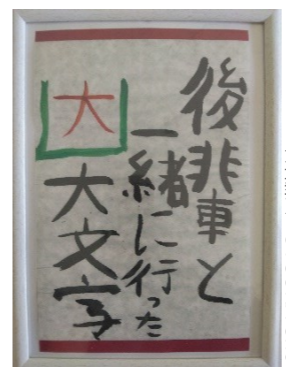 後輩と
一緒に行った
大 大文字